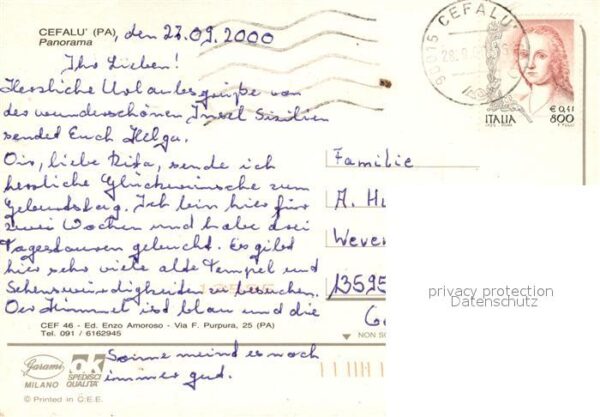 CEFALU' (PA), den 27.09.2000
Panorama
Ihr Lieben!
Herzliche Urlaubsgrüße von
der wunderschönen Insel Sizilien
sendet Euch Helga.
Dir, liebe Rita, sende ich
herzliche Glückwünsche zum
Geburtstag. Ich bin hier für
zwei Wochen und habe drei
Tagestouren gebucht. Es gibt
hier sehr viele alte Tempel und
Sehenswürdigkeiten zu besuchen.
Der Himmel ist blau und die
CEF 46 - Ed. Enzo Amoroso - Via F. Purpura, 25 (PA)
Tel. 091 / 6162945
Sonne meint es noch
immer gut.
Garami
MILANO
OK
SPEDISCI
QUALITA'
© Printed in C.E.E.
90015 CEFALU'
€ 0,41
ITALIA 800
Familie
A. Hu
Wever
13595
NON SC
privacy protection
Datenschutz